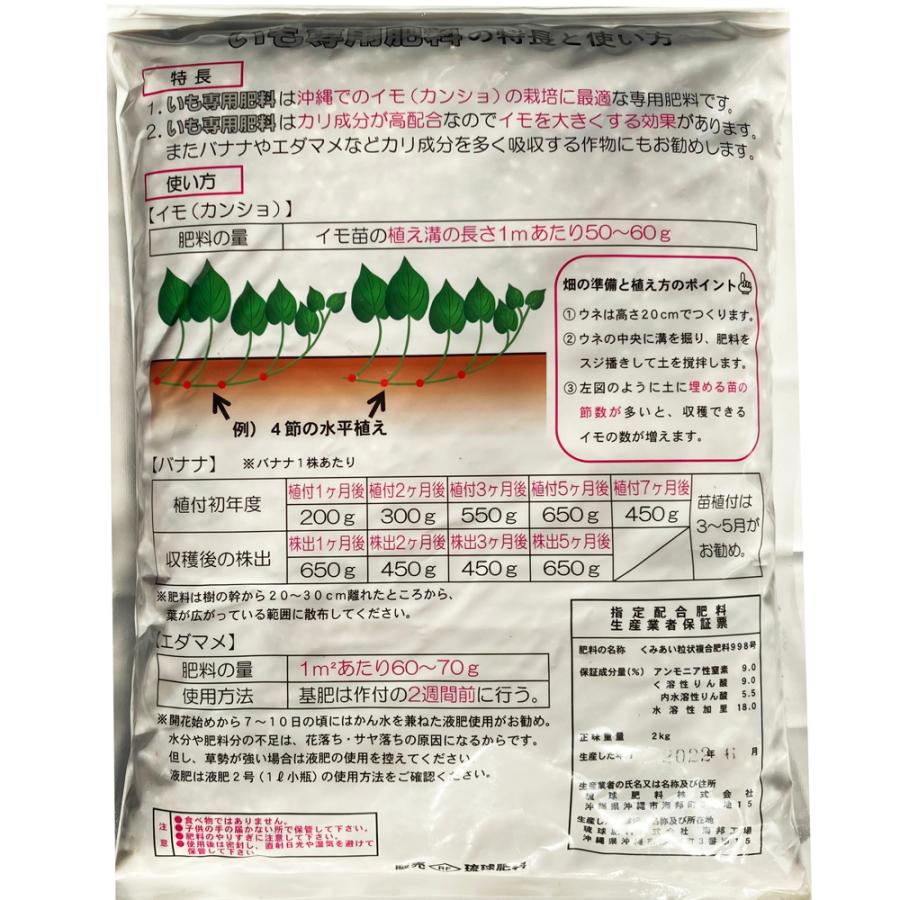 いも専用肥料の特長と使い方
特長
1. いも専用肥料は沖縄でのイモ(カンショ)の栽培に最適な専用肥料です。
2. いも専用肥料はカリ成分が高配合なのでイモを大きくする効果があります。
またバナナやエダマメなどカリ成分を多く吸収する作物にもお勧めします。
使い方
【イモ(カンショ)】
肥料の量 イモ苗の植え溝の長さ1mあたり50〜60g
畑の準備と植え方のポイント
①ウネは高さ20cmでつくります。
②ウネの中央に溝を掘り、肥料を
スジ播きして土を撹拌します。
③左図のように土に埋める苗の
節数が多いと、収穫できる
イモの数が増えます。
例) 4節の水平植え
【バナナ】 ※バナナ1株あたり
植付初年度 植付1ヶ月後 植付2ヶ月後 植付3ヶ月後 植付5ヶ月後 植付7ヶ月後
200g 300g 550g 650g 450g
収穫後の株出 株出1ヶ月後 株出2ヶ月後 株出3ヶ月後 株出5ヶ月後
650g 450g 450g 650g
苗植付は
3〜5月が
お勧め。
※肥料は樹の幹から20〜30cm離れたところから、
葉が広がっている範囲に散布してください。
【エダマメ】
肥料の量 1m²あたり60〜70g
使用方法 基肥は作付の2週間前に行う。
※開花始めから7〜10日の頃にはかん水を兼ねた液肥使用がお勧め。
水分や肥料分の不足は、花落ち・サヤ落ちの原因になるからです。
但し、草勢が強い場合は液肥の使用を控えてください。
液肥は液肥2号(1ℓ小瓶)の使用方法をご確認ください。
指定配合肥料
生産業者保証票
肥料の名称 くみあい粒状複合肥料998号
保証成分量(%) アンモニア性窒素 9.0
く溶性りん酸 9.0
内水溶性りん酸 5.5
水溶性加里 18.0
正味重量 2kg
生産した年 月
生産業者の氏名又は名称及び住所
琉球肥料株式会社
沖縄県沖縄市海邦町3番地15
生産した 名称及び所在地
琉球肥料 式会社 海邦工場
沖縄県沖縄市 町3番地15
注意
●食べ物ではありません。
●子供の手の届かない所で保管して下さい。
●肥料のやりすぎに注意して下さい。
●使用後は密封し、直射日光や湿気を避けて
保管して下さい。
販売 琉球肥料